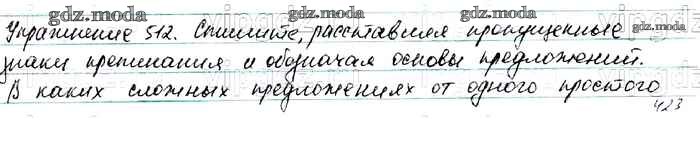 gdz.moda gdz.moda gdz.moda gdz.moda
Упражнение 512. Спишите, расставляя пропущенные
gdz.moda
знаки препинания и обозначая основы предложений.
В каких сложных предложениях от одного простого
423